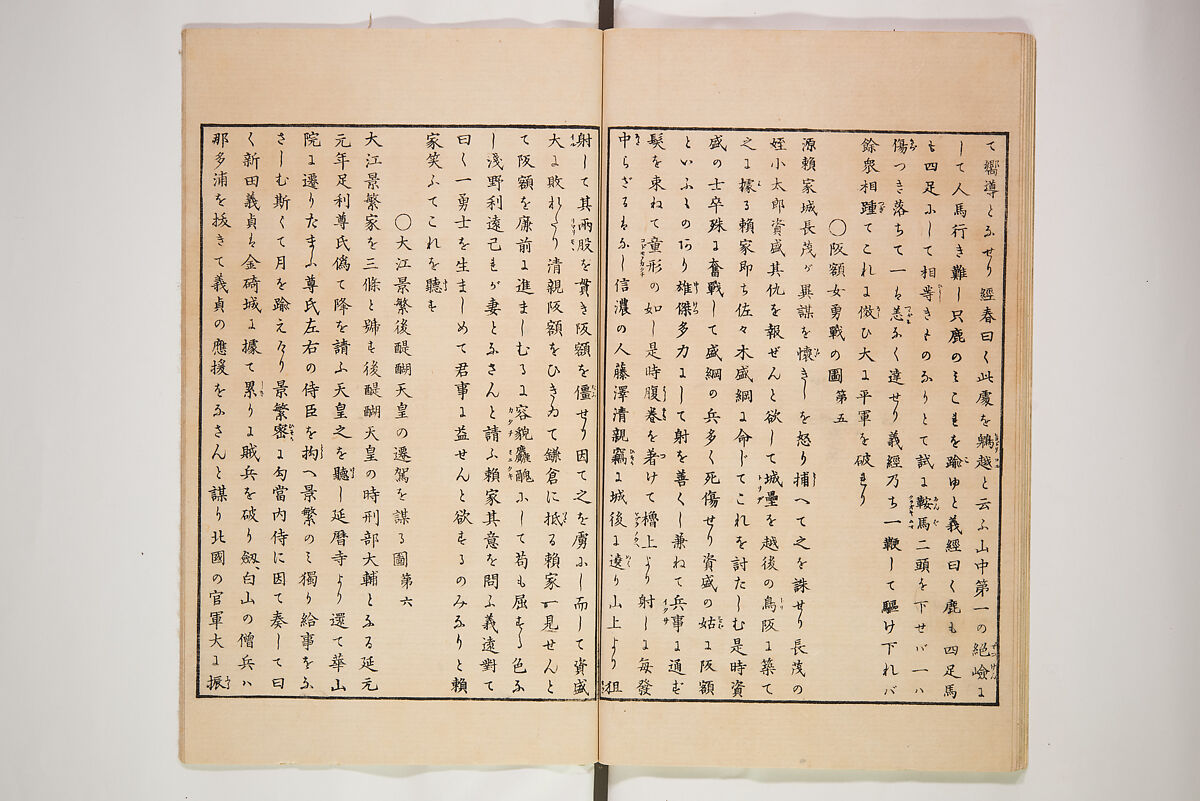 て嚮導となせり經春曰く此處を鵯越と云ふ山中第一の絶嶮に
して人馬行き難し只鹿のみこれを踰ゆと義經曰く鹿も四足馬
も四足にして相等きものなりとて試に鞍馬二頭を下せバ一ハ
傷つき落ちて一ハ恙なく達せり義經乃ち一鞭して驅け下れバ
餘衆相踵てこれに傚ひ大に平軍を破れり
〇阪額女勇戰の圖 第五
源賴家城長茂が異謀を懷きしを怒り捕へて之を誅せり長茂の
姪小太郎資盛其仇を報ぜんと欲して城壘を越後の鳥阪に築て
之に據る賴家即ち佐々木盛綱に命じてこれを討たしむ是時資
盛の士卒殊に奮戰して盛綱の兵多く死傷せり資盛の姑に阪額
といふものあり雄傑多力にして射を善くし兼ねて兵事に通ず
髮を束ねて童形の如し是時腹卷を著けて櫓上より射しに每發
中らざるなし信濃の人藤澤淸親竊に城後に遶り山上より狙
射して其兩股を貫き阪額を僵せり因て之を虜にし而して資盛
大に敗れたり淸親阪額をひきゐて鎌倉に抵る賴家一見せんと
て阪額を廉前に進ましむるに容貌麤醜にして苟も屈する色な
し淺野利遠己れが妻となさんと請ふ賴家其意を問ふ義遠對て
曰く一勇士を生ましめて君事に益せんと欲するのみなりと賴
家笑ふてこれを聽す
〇大江景繁後醍醐天皇の遷駕を謀る圖 第六
大江景繁家を三條と號す後醍醐天皇の時刑部大輔となる延元
元年足利尊氏僞て降を請ふ天皇之を聽し延曆寺より還て華山
院に遷りたまふ尊氏左右の侍臣を拘へ景繁のミ獨り給事をな
さしむ斯くて月を踰えけり景繁密に勾當内侍に因て奏して曰
く新田義貞は金碕城に據て累りに賊兵を破り劔、白山の僧兵ハ
那多浦を扳きて義貞の應援をなさんと謀り北國の官軍大に振